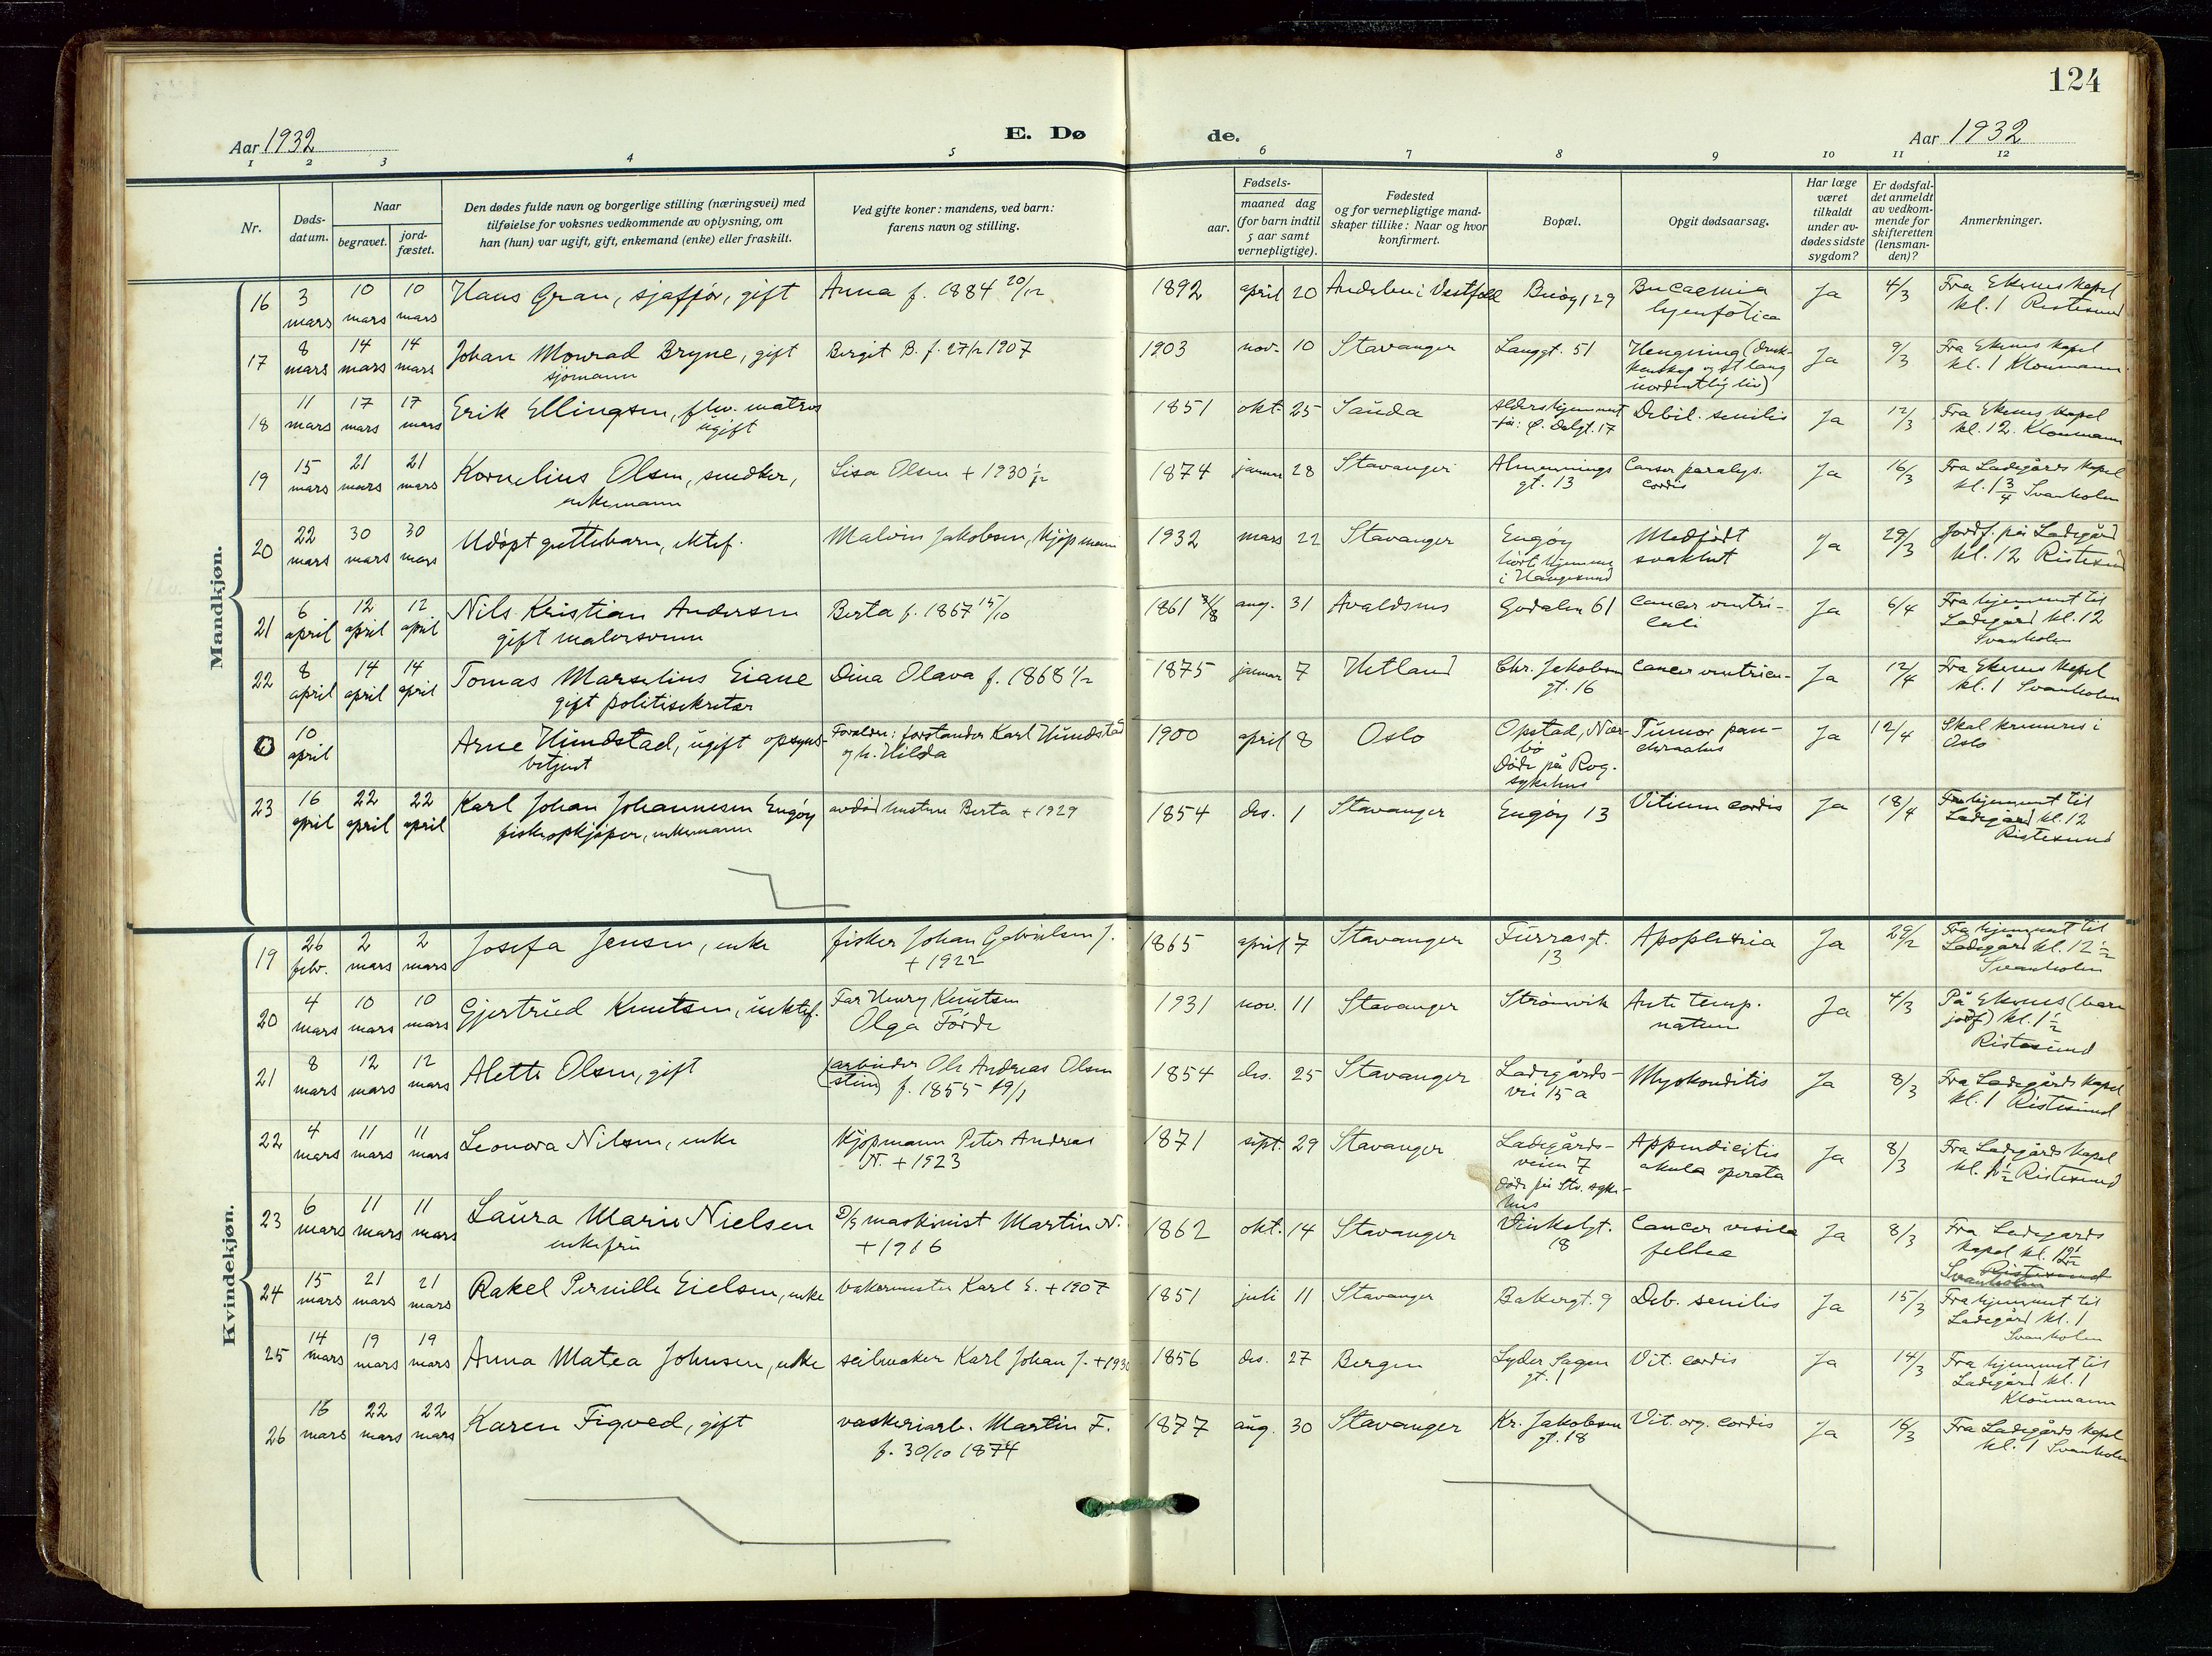 124
Aar 1932
E. Dø de.
Aar 1932
1 2 3 4 5 6 7 8 9 10 11 12
Nr.
Døds-
datum.
Naar
begravet.
jord-
fæstet.
Den dødes fulde navn og borgerlige stilling (næringsvei) med
tilføielse for voksnes vedkommende av oplysning, om
han (hun) var ugift, gift, enkemand (enke) eller fraskilt.
Ved gifte koner: mandens, ved barn:
farens navn og stilling.
Fødsels-
aar.
maaned dag
(for barn indtil
5 aar samt
vernepligtige).
Fødested
og for vernepligtige mand-
skaper tillike: Naar og hvor
konfirmert.
Bopæl.
Opgit dødsaarsag.
Har læge
været
tilkaldt
under av-
dødes sidste
sygdom?
Er dødsfal-
det anmeldt
av vedkom-
mende for
skifteretten
(lensman-
den)?
Anmerkninger.
Mandkjøn.
16 3 mars 10 mars 10 mars Hans Gran, sjaffør, gift Anna f. 1884 20/12 1892 april 20 Andebu i Vestfold Buøy 129 Ja 4/3 Fra Ekenes kapel
kl. 1 Ristesund
17 8 mars 14 mars 14 mars Johan Monrad Bryne, gift Birgit B. f. 27/12 1907 1903 nov. 10 Stavanger Langgt. 51 Hengning (druk-
kenskap og et lang
uordentlig liv) Ja 9/3 Fra Ekenes kapel
sjømann kl. 1 Kloumann
18 11 mars 17 mars 17 mars Erik Ellingsen, fhv. matros
ugift 1851 okt. 25 Sauda Aldershjemmet
Dalgt. 17 Debil. senilis Ja 12/3 Fra Ekenes kapel
kl. 12. Kloumann
19 15 mars 21 mars 21 mars Kornelius Olsen, snedker,
enkemann Lisa Olsen + 1930 1/12 1874 januar 28 Stavanger Almennings
gt. 13 Cancer paralys.
cordis Ja 16/3 Fra Ladegårds kapel
kl. 1 3/4 Svanholm
20 22 mars 30 mars 30 mars Udøpt guttebarn, ektef. Malvin Jakobsen, kjøpmann 1932 mars 22 Stavanger Engøy
hørte hjemme
i Haugesund Medfødt
svakhet Ja 29/3 Jordf. på Ladegård
kl. 12 Ristesund
21 6 april 12 april 12 april Nils Kristian Andersen
gift malersvenn Berta f. 1867 15/10 1861 31/8 aug. 31 Avaldsnes Godalen 61 Cancer ventri-
culi Ja 6/4 Fra hjemmet til
Ladegård kl. 12
Svanholm
22 8 april 14 april 14 april Tomas Marselius Eiane
gift politisekretær Dina Olava f. 1868 1/12 1875 januar 7 Hetland Chr. Jakobsen
gt. 16 Cancer ventricu- Ja 12/4 Fra Ekenes kapel
kl. 1 Svanholm
0 10 april Arne Hundstad, ugift opsyns-
betjent Foreldre: forstander Karl Hundstad
og h. Hilda 1900 april 8 Oslo Opstad, Nær-
bø
Døde på Rog.
sykehus Tumor pan-
Ja 12/4 Skal kremeres i
Oslo
23 16 april 22 april 22 april Karl Johan Johannesen Engøy
fiskeopkjøper, enkemann avdød hustru Berta + 1929 1854 des. 1 Stavanger Engøy 13 Vitium cordis Ja 18/4 Fra hjemmet til
Ladegård kl. 12
Ristesund
Kvindekjøn.
19 26 febr. 2 mars 2 mars Josefa Jensen, enke fisker Johan Gabrielsen J.
+ 1922 1865 april 7 Stavanger Furrasgt.
13 Apoplexia Ja 29/2 Fra hjemmet til
Ladegård kl. 12 1/2
Svanholm
20 4 mars 10 mars 10 mars Gjertrud Knutsen, uektef. Far Henry Knutsen
Olga Førde 1931 nov. 11 Stavanger Strømvik Ante temp.
natum Ja 4/3 På Ekenes (barn
jordf) kl. 1 1/2
Ristesund
21 8 mars 12 mars 12 mars Alette Olsen, gift (arbeider Ole Andreas Olsen
(stein) f. 1855 19/1 1854 des. 25 Stavanger Ladegårds-
vei 15 a Myokarditis Ja 8/3 Fra Ladegårds kapel
kl. 1 Ristesund
22 4 mars 11 mars 11 mars Leonora Nilsen, enke Kjøpmann Peter Andreas
N. + 1923 1871 sept. 29 Stavanger Ladegårds-
veien 7
døde på Stv. syke-
hus Appendicitis
akuta operata Ja 8/3 Fra Ladegårds kapel
kl. 1 1/2 Ristesund
23 6 mars 11 mars 11 mars Laura Marie Nielsen
enkefru D/S maskinist Martin N.
+ 1916 1862 okt. 14 Stavanger Vinkelgt.
18 Cancer vesica
fellea Ja 8/3 Fra Ladegårds
kapel kl. 12 1/2
Ristesund
Svanholm
24 15 mars 21 mars 21 mars Rakel Pernille Eielsen, enke bakermester Karl E. + 1907 1851 juli 11 Stavanger Bakergt. 9 Deb. senilis Ja 15/3 Fra hjemmet til
Ladegård kl. 1
Svanholm
25 14 mars 19 mars 19 mars Anna Matea Johnsen, enke seilmaker Karl Johan J. + 1930 1856 des. 27 Bergen Lyder Sagen
gt. 1 Vit. cordis Ja 14/3 Fra hjemmet til
Ladegård kl. 1
Kloumann
26 16 mars 22 mars 22 mars Karen Figved, gift vaskeriarb. Martin F.
f. 30/10 1874 1877 aug. 30 Stavanger Kr. Jakobsen
gt. 18 Vit. org. cordis Ja 16/3 Fra Ladegårds kapel
kl. 1 Svanholm